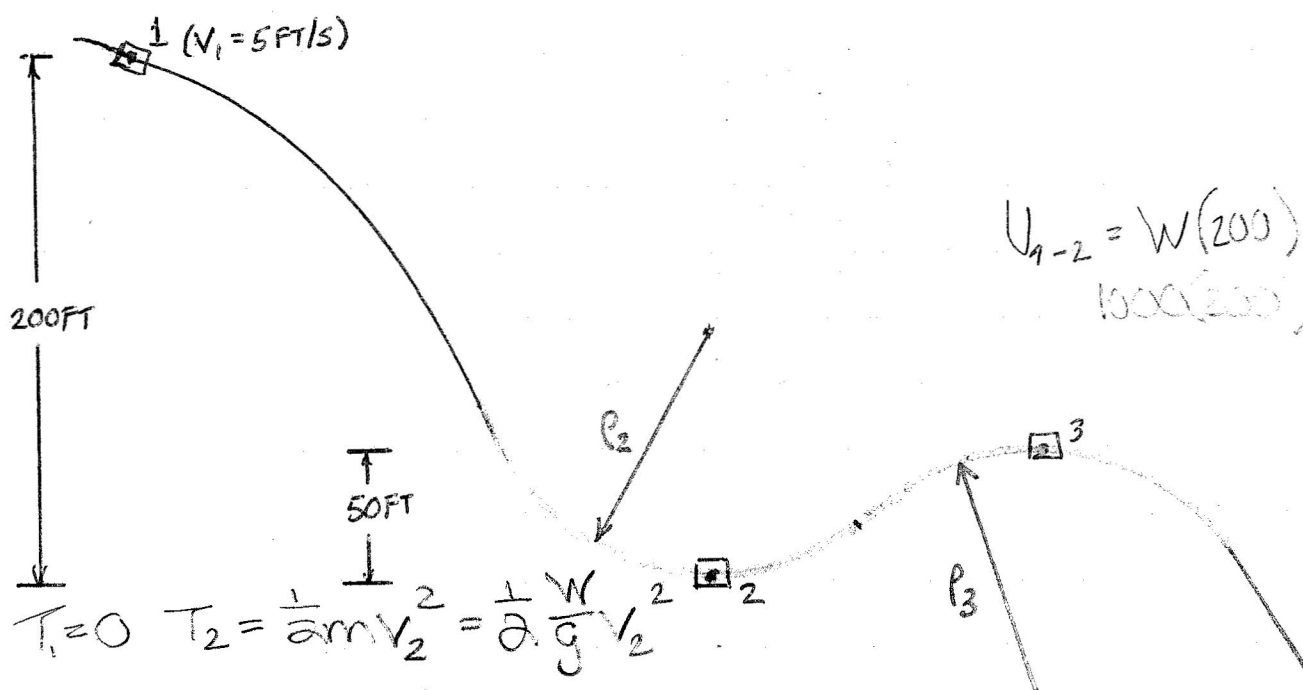 1 (V₁ = 5FT/S)
200FT
U₁₋₂ = W(200)
1000(200)
ρ₂
3
50FT
2
ρ₃
T₁=0 T₂ = 1/2 mv₂² = 1/2 W/g V₂²